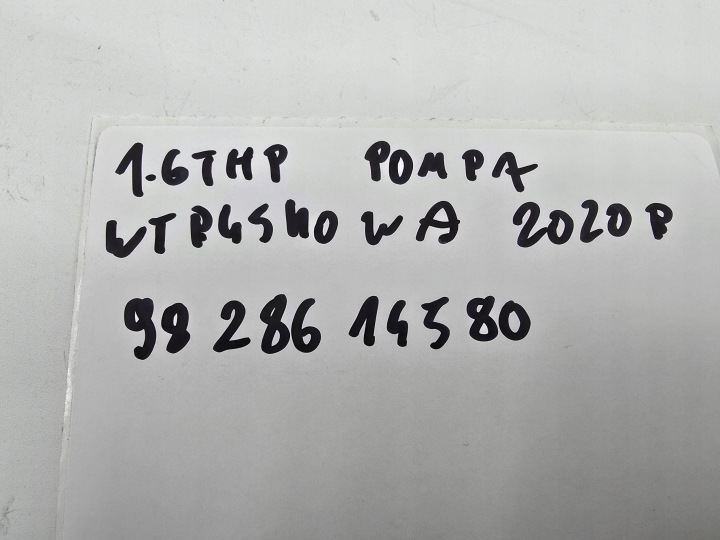 1.6THP POMPA
WTRYSKOWA 2020R
98 286 145 80